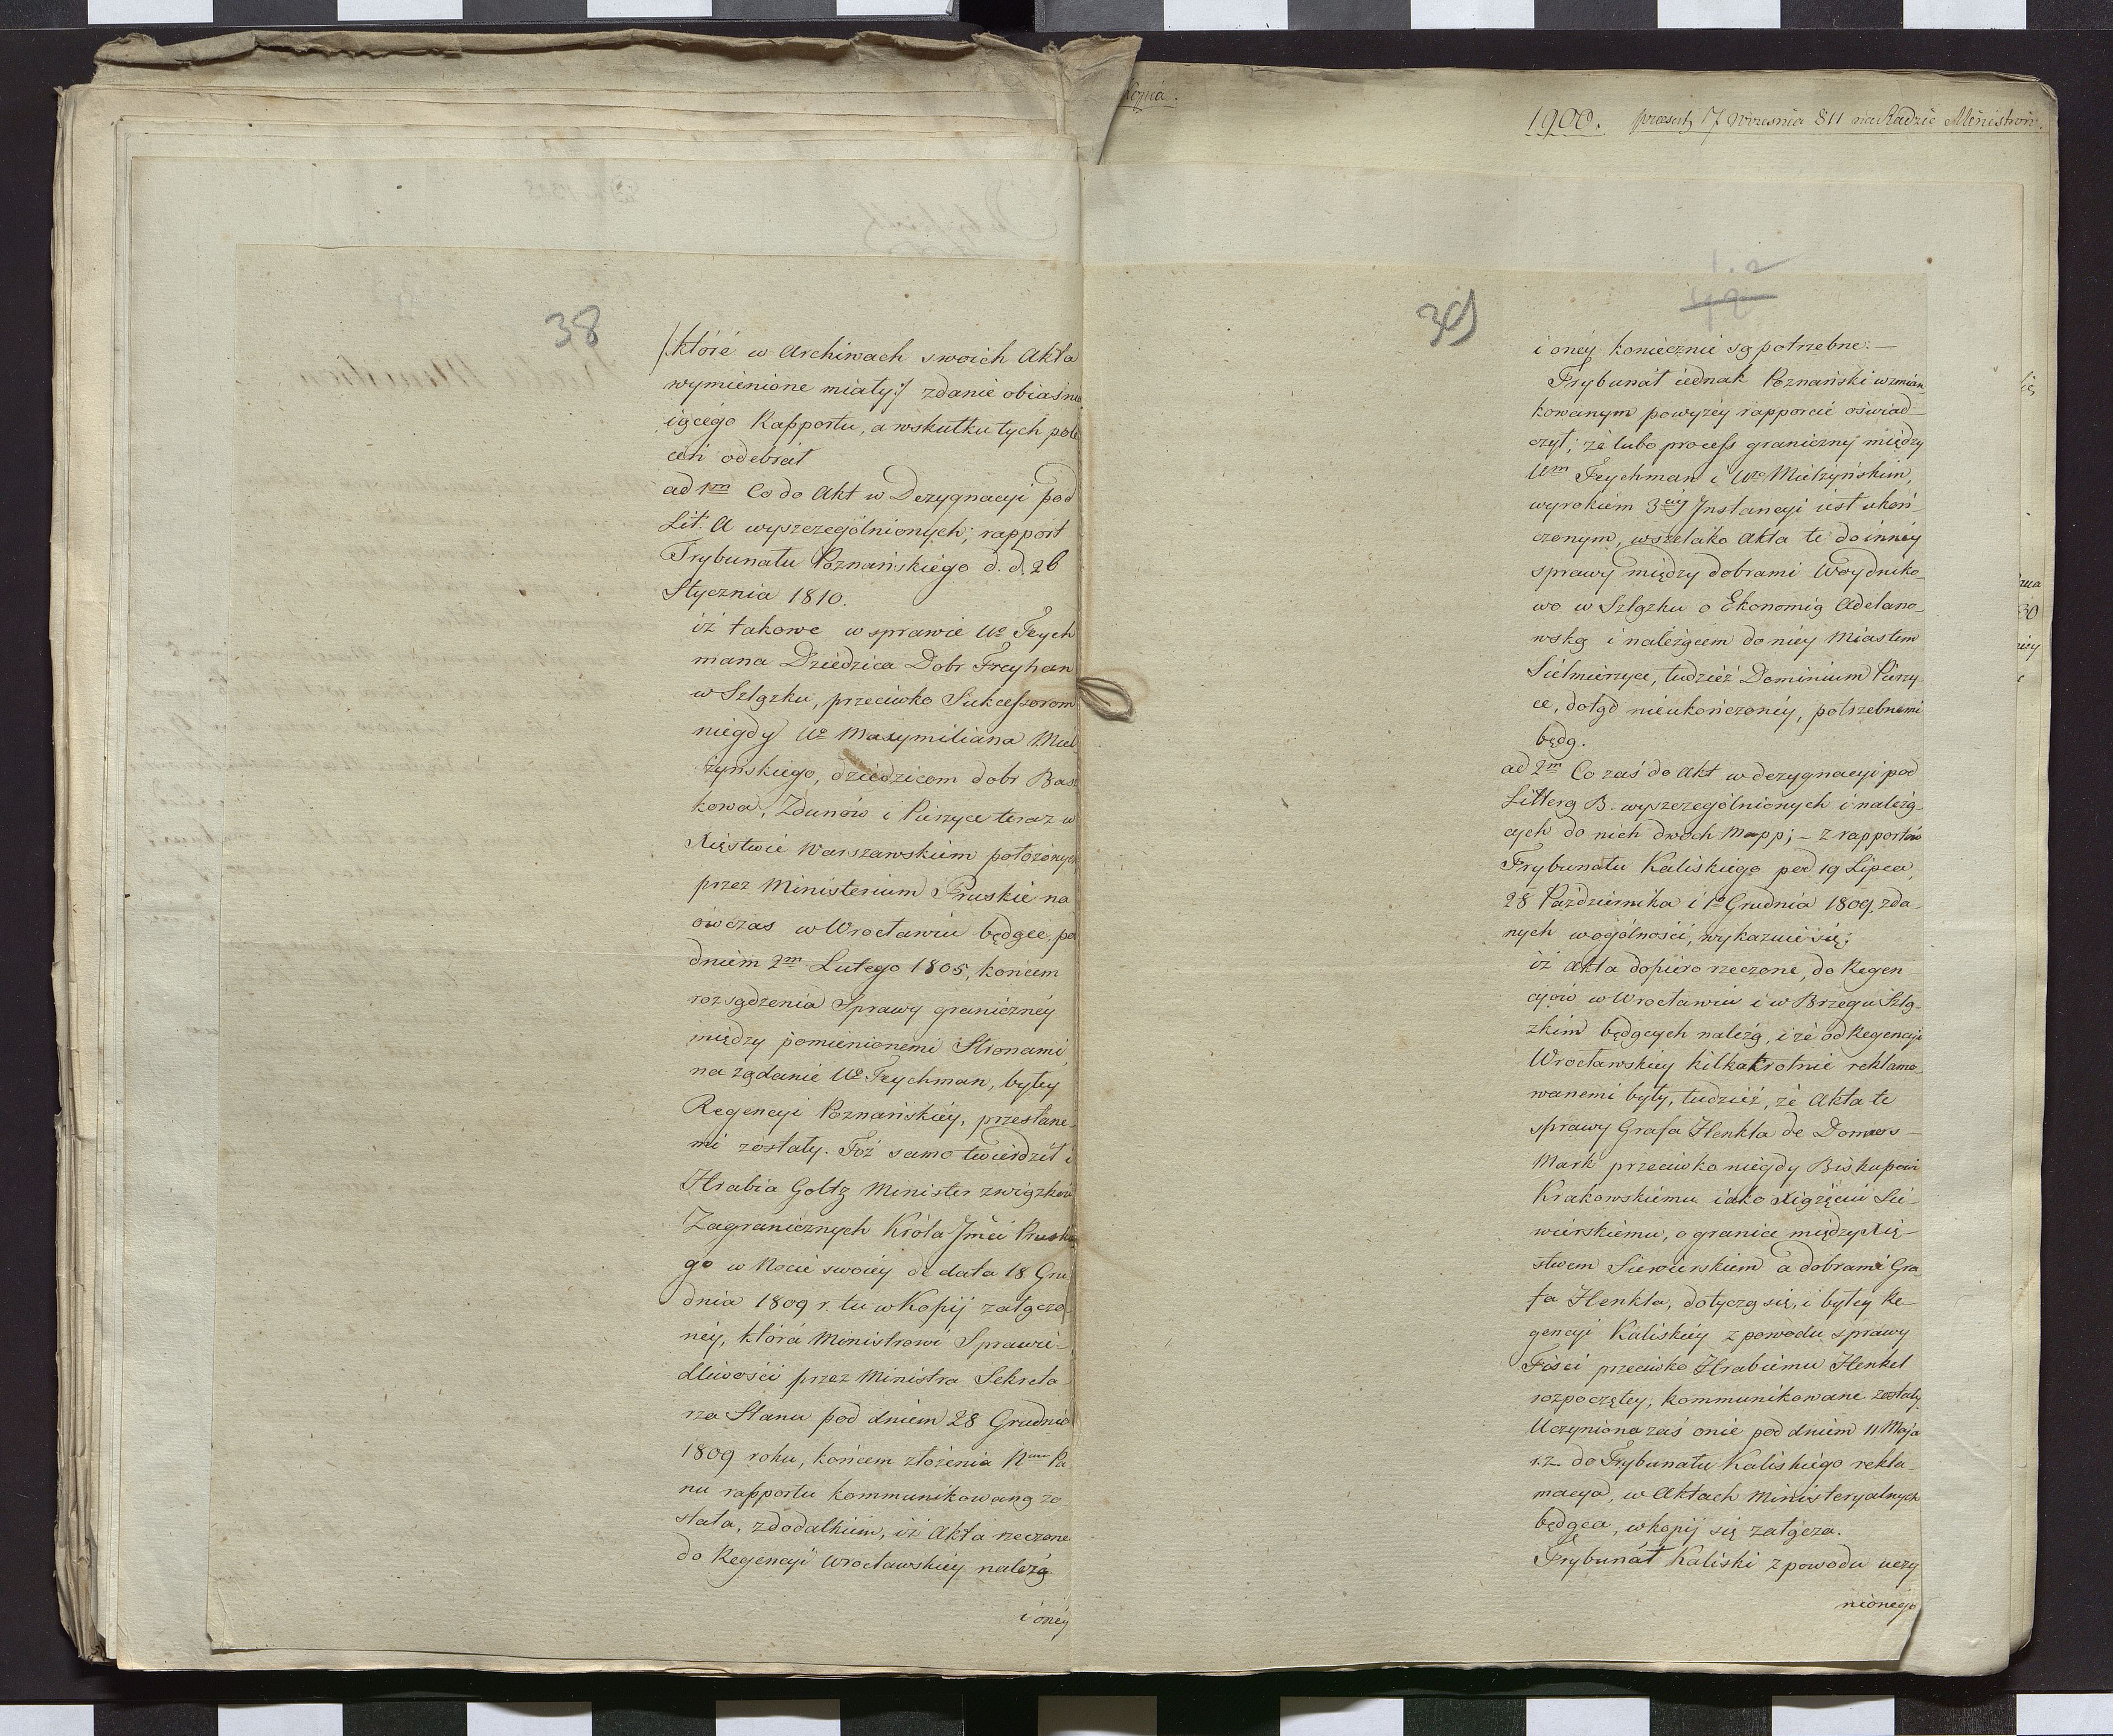 38
/:które w Archiwach swoich Akta
wymienione miały:/ zdanie obiaśnia
iącego Rapportu, a wskutku tych pole
ceń odebrał
ad 1m Co do Akt w Dezygnacyi pod
Lit. A wyszczególnionych; rapport
Trybunału Poznańskiego d. d. 26
Stycznia 1810.
iż takowe w sprawie Uo Teych
mana Dziedzica Dobr Freyhan
w Szląsku, przeciwko Sukcessorom
niegdy Uo Maxymiliana Miel
żynskiego, dziedzicom dobr Basz
kowa, Zdunów i Pierzyce teraz w
Xięstwie Warszawskiem położonych
przez Ministerium Pruskie na
ówczas w Wrocławiu będące, po
dniem 2m Lutego 1805, końcem
rozsądzenia Sprawy graniczney
między pomienionemi Stronami,
na żądanie Uo Teychman, byłey
Regencyi Poznańskiey, przesłane-
mi zostały. Toż samo twierdził i
Hrabia Goltz Minister związków
Zagranicznych Króla Jmci Pruskie
go w Nocie swoiey de data 18 Gru
dnia 1809 r. tu w Kopij załączo-
ney, która Ministrowi Sprawie-
dliwości przez Ministra Sekreta-
rza Stanu pod dniem 28 Grudnia
1809 roku, końcem złożenia Nmu Pa
nu rapportu kommunikowaną zo-
stała, z dodatkiem, iż Akta rzeczone
do Regencyi Wrocławskiey należą
i oney
Kopia.
1900. præsent, 17 Wrzesnia 811 na Radzie Ministrow.
39
1.2
i oney koniecznie są potrzebne. –
Trybunał iednak Poznański wzmian-
kowanym powyżey rapporcie oświad-
czył; że lubo process graniczny między
Um Teychman i Um Mielżyńskim,
wyrokiem 3ciey Instancyi iest ukoń-
czonym, wszelako Akta te do inney
sprawy między dobrami Woydniko-
wo w Szląsku o Ekonomią Adelano-
wską i należącem do niey Miastem
Sielmierzyce, tudzież Dominium Pierzy
ce, dotąd nieukończoney, potrzebnemi
będą.
ad 2m Co zaś do Akt w dezygnacyi pod
Litterą B. wyszczególnionych i należą-
cych do nich dwóch Mapp; – z rapportów
Trybunału Kaliskiego pod 19 Lipca,
28 Października i 1o Grudnia 1809. zda-
nych w ogólności, wykazuie się;
iż Akta dopiero rzeczone, do Regen
cyów w Wrocławiu i w Brzegu Szlą-
zkim będących należą, i że od Regencyi
Wrocławskiey kilkakrotnie reklamo-
wanemi były, tudzież, że Akta te
sprawy Grafa Henkla de Donners-
Mark przeciwko niegdy Biskupowi
Krakowskiemu iako Xiążęciu Sie-
wierskiemu, o granice między Xię-
stwem Siewierskiem a dobrami Gra
fa Henkla, dotyczą się, i byłey Re-
gencyi Kaliskiey z powodu sprawy
Fisci przeciwko Hrabiemu Henkel
rozpoczętey, kommunikowane zostały.
Uczyniona zaś onie pod dniem 11 Maja
r. z. do Trybunału Kaliskiego rekla-
macya, w Aktach Ministeryalnych
będąca, w kopij się załącza.
Trybunał Kaliski z powodu uczy
nionego